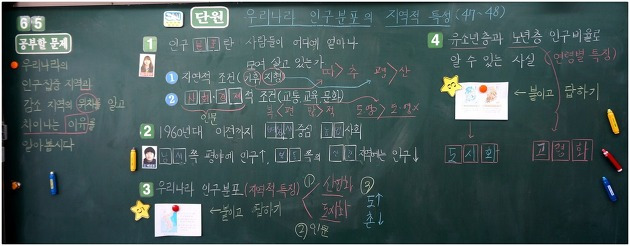 65
공부할 문제
우리나라의
인구 집중 지역과
감소 지역의 위치를 알고
차이나는 이유를
알아봅시다
단원 우리나라 인구분포의 지역적 특성 (47~48)
1 인구 분포란 사람들이 어디에 얼마나
모여 살고 있는가
① 자연적 조건(기후, 지형) 따>추 평>산
② 사회·경제적 조건(교통 교육 문화)
인문
2 1960년대 이전까지 중심 사회
쪽 평야에 인구↑ 쪽의 지역에는 인구↓
3 우리나라 인구분포 (지역적 특징)
←붙이고 답하기
①
② 인문
③
도↑
촌↓
4 유소년층과 노년층 인구 비율로
알 수 있는 사실 (연령별 특징)
←붙이고 답하기
도시화
고령화